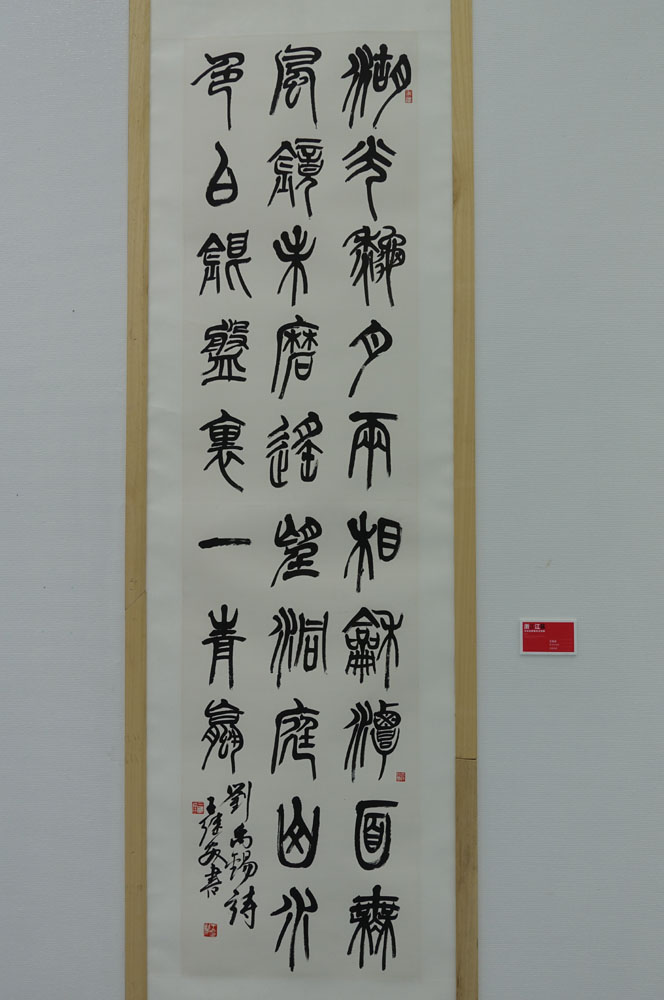 湖光秋月兩相龢潭面無
風鏡未磨遙望洞庭山水
色白銀盤裏一青蠃
劉禹錫詩
書
江